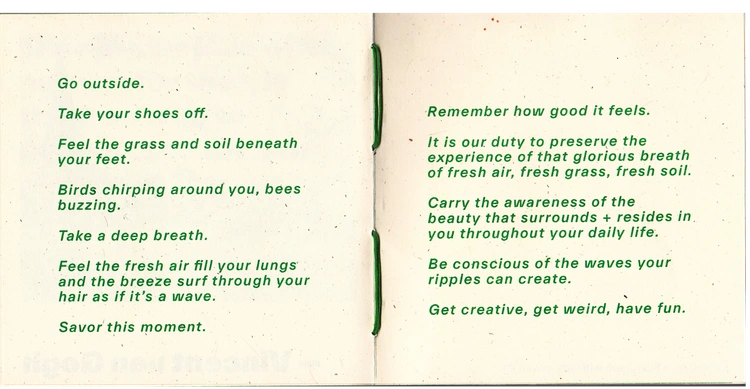 Go outside.
Take your shoes off.
Feel the grass and soil beneath
your feet.
Birds chirping around you, bees
buzzing.
Take a deep breath.
Feel the fresh air fill your lungs
and the breeze surf through your
hair as if it's a wave.
Savor this moment.
Remember how good it feels.
It is our duty to preserve the
experience of that glorious breath
of fresh air, fresh grass, fresh soil.
Carry the awareness of the
beauty that surrounds + resides in
you throughout your daily life.
Be conscious of the waves your
ripples can create.
Get creative, get weird, have fun.